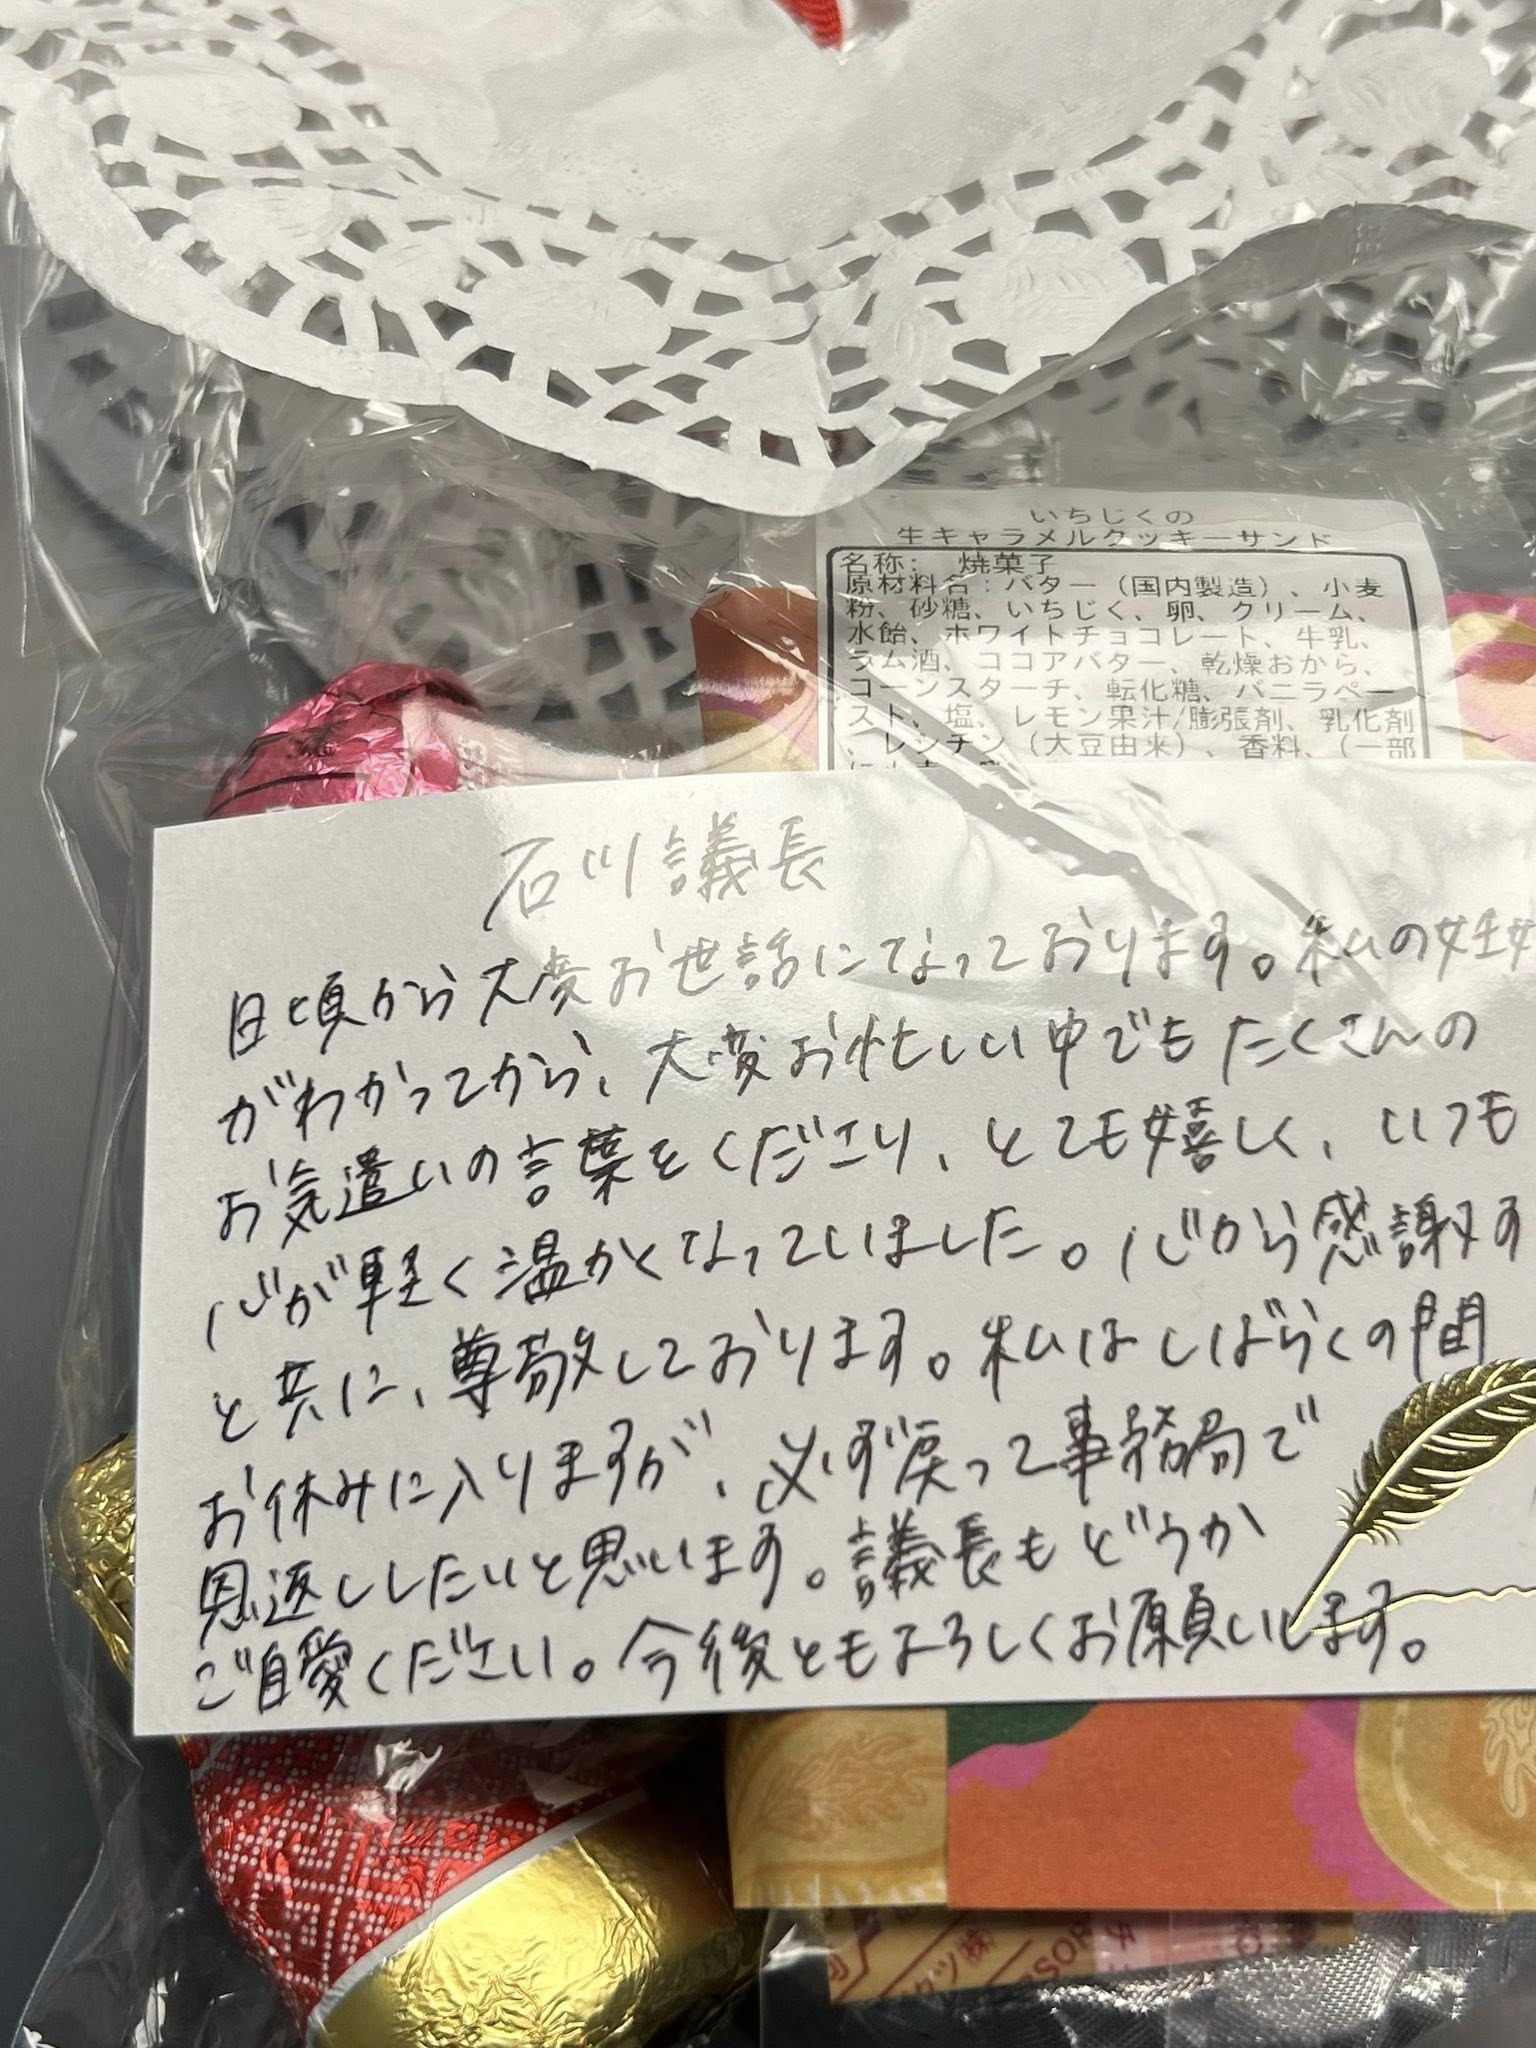 いちじくの
生キャラメルクッキーサンド
名称: 焼菓子
原材料名:バター(国内製造)、小麦
粉、砂糖、いちじく、卵、クリーム、
水飴、ホワイトチョコレート、牛乳、
ラム酒、ココアバター、乾燥おから、
コーンスターチ、転化糖、バニラペー
スト、塩、レモン果汁/膨張剤、乳化剤
、レシチン(大豆由来)、香料、(一部
石川議長
日頃から大変お世話になっております。私の妊娠
がわかってから、大変お忙しい中でもたくさんの
お気遣いの言葉をくださり、とても嬉しく、いつも
心が軽く温かくなっていました。心から感謝す
と共に、尊敬しております。私はしばらくの間
お休みに入りますが、必ず戻って事務局で
恩返ししたいと思います。議長もどうか
ご自愛ください。今後ともよろしくお願いします。